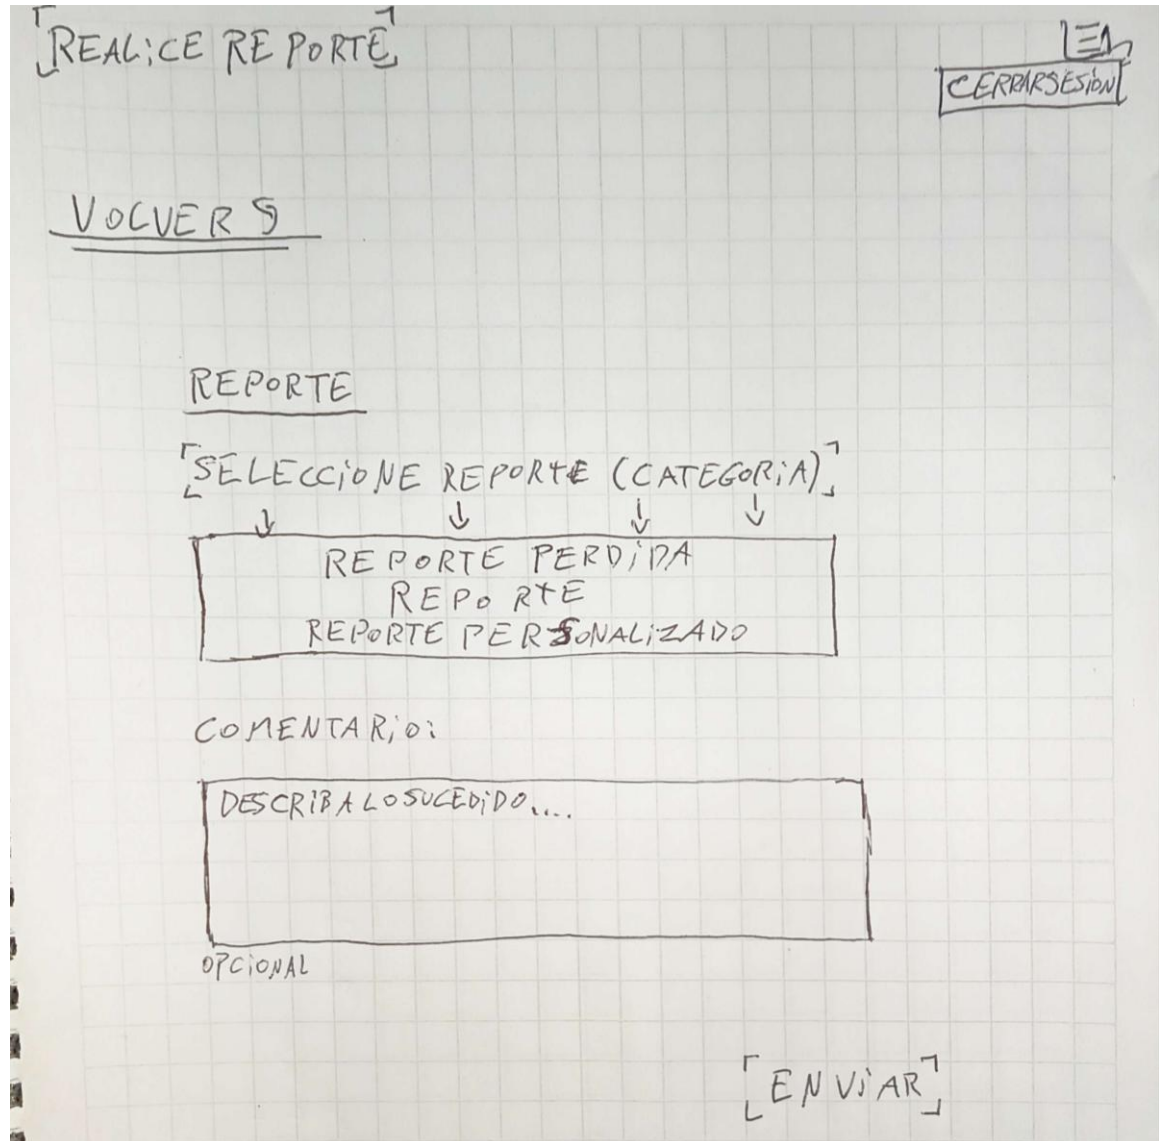 REALICE REPORTE
CERRAR SESIÓN
VOLVER
REPORTE
SELECCIONE REPORTE (CATEGORIA)
REPORTE PERDIDA
REPORTE
REPORTE PERSONALIZADO
COMENTARIO:
DESCRIBA LO SUCEDIDO....
OPCIONAL
ENVIAR